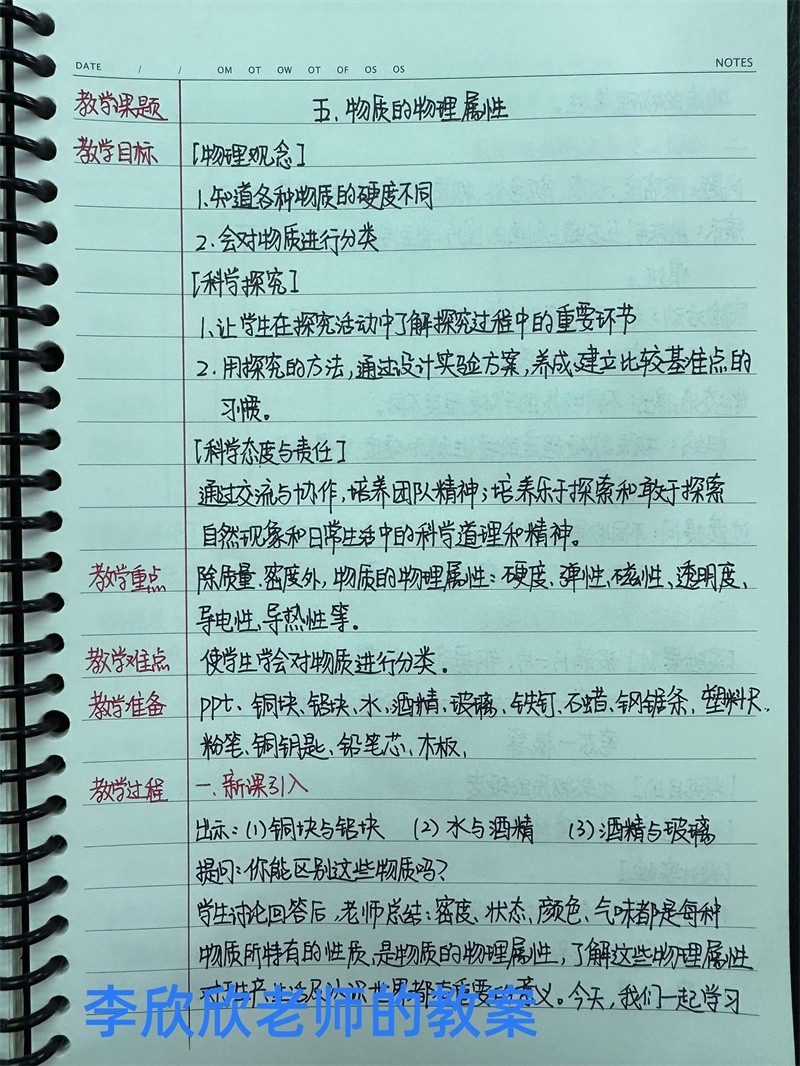 DATE / / OM OT OW OT OF OS OS NOTES
教学课题 五、物质的物理属性
教学目标 [物理观念]
1.知道各种物质的硬度不同
2.会对物质进行分类
[科学探究]
1.让学生在探究活动中了解探究过程中的重要环节
2.用探究的方法,通过设计实验方案,养成、建立比较基准点的
习惯。
[科学态度与责任]
通过交流与协作,培养团队精神;培养乐于探索和敢于探索
自然现象和日常生活中的科学道理和精神。
教学重点 除质量、密度外,物质的物理属性:硬度、弹性、磁性、透明度、
导电性、导热性等。
教学难点 使学生学会对物质进行分类。
教学准备 ppt、铜块、铝块、水、酒精、玻璃、铁钉、石蜡、钢锯条、塑料尺、
粉笔、铜钥匙、铅笔芯、木板,
教学过程 一.新课引入
出示:(1)铜块与铝块 (2)水与酒精 (3)酒精与玻璃
提问:你能区别这些物质吗?
学生讨论回答后,老师总结:密度、状态、颜色、气味都是每种
物质所特有的性质、是物质的物理属性,了解这些物理属性
世界都 重要 意义。今天,我们一起学习
李欣欣老师的教案